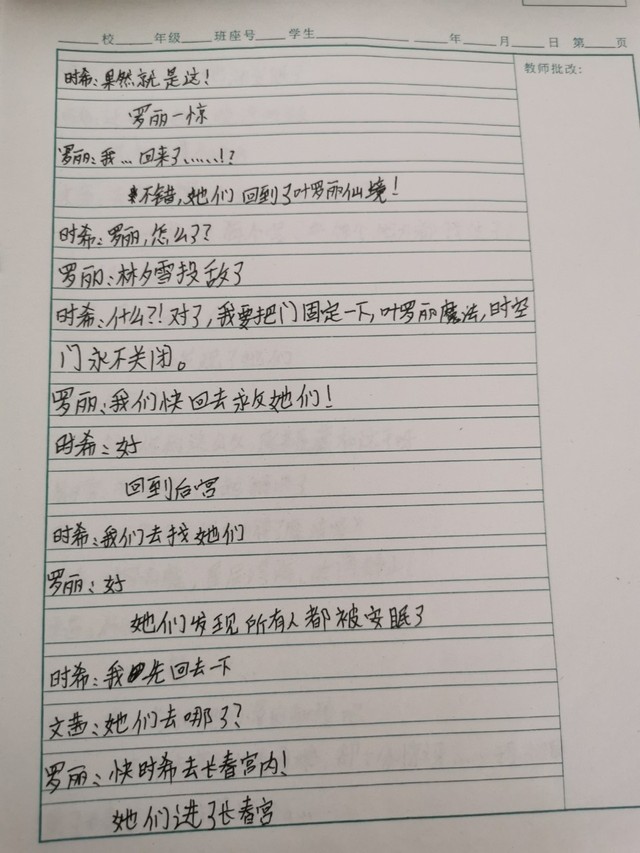 校 年级 班座号 学生 年 月 日 第 页
教师批改:
时希:果然就是这!
罗丽一惊
罗丽:我...回来了......!?
不错,她们回到了叶罗丽仙境!
时希:罗丽,怎么了?
罗丽:林夕雪投敌了
时希:什么?!对了,我要把门固定一下,叶罗丽魔法,时空
门永不关闭。
罗丽:我们快回去救她们!
时希:好
回到后宫
时希:我们去找她们
罗丽:好
她们发现所有人都被安眠了
时希:我先回去一下
文茜:她们去哪了?
罗丽:快时希去长春宫内!
她们进了长春宫